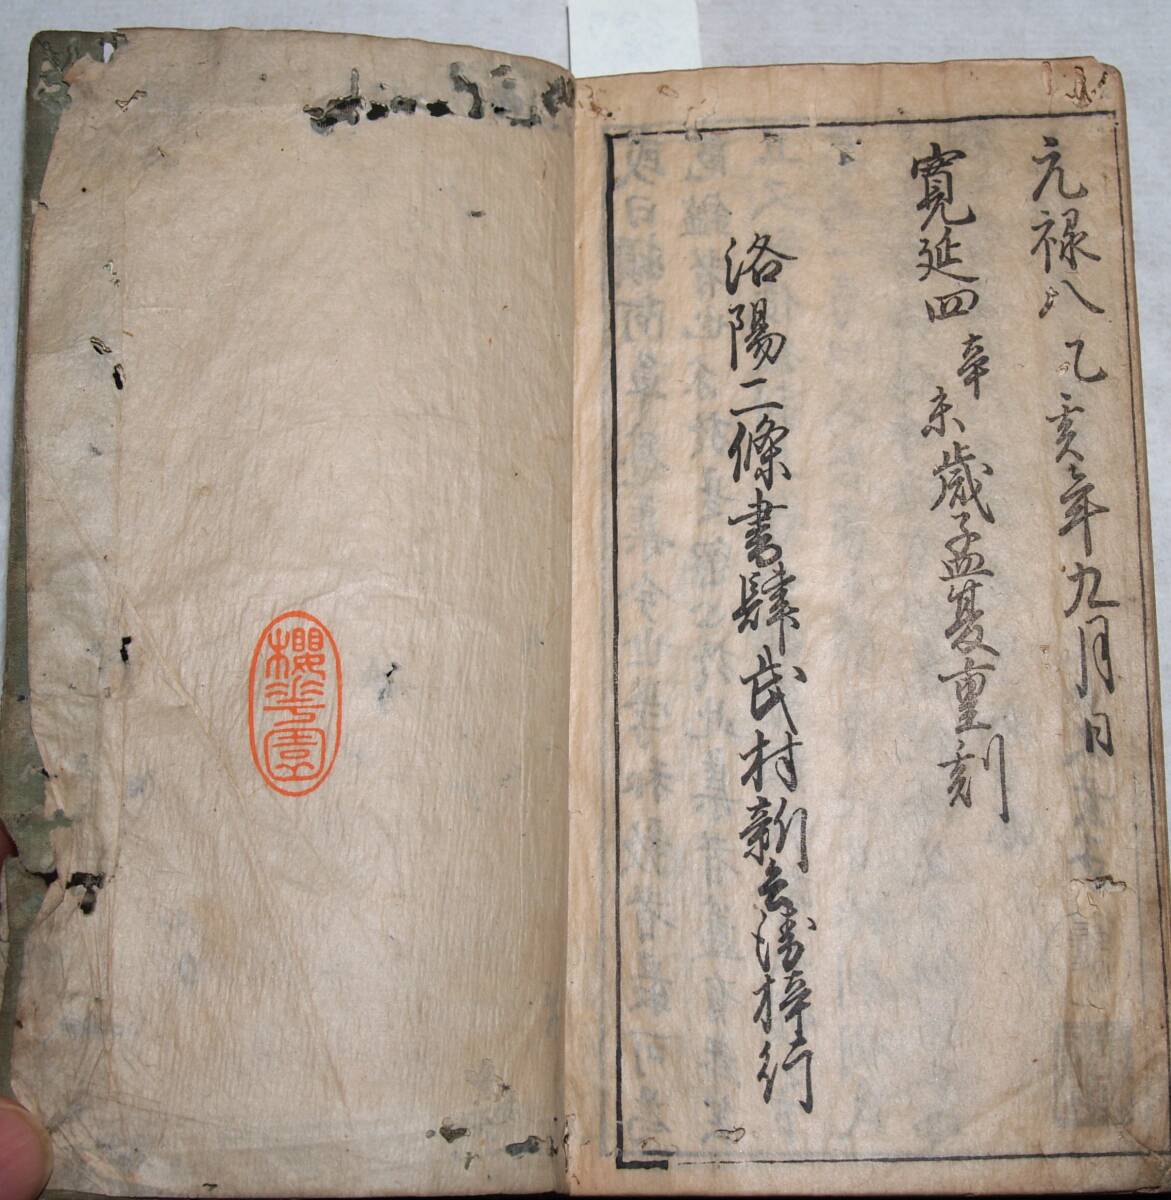 元禄八乙亥年九月日
寛延四辛未歳孟夏重刻
洛陽二條書肆武村新兵衛梓行
櫻井堂